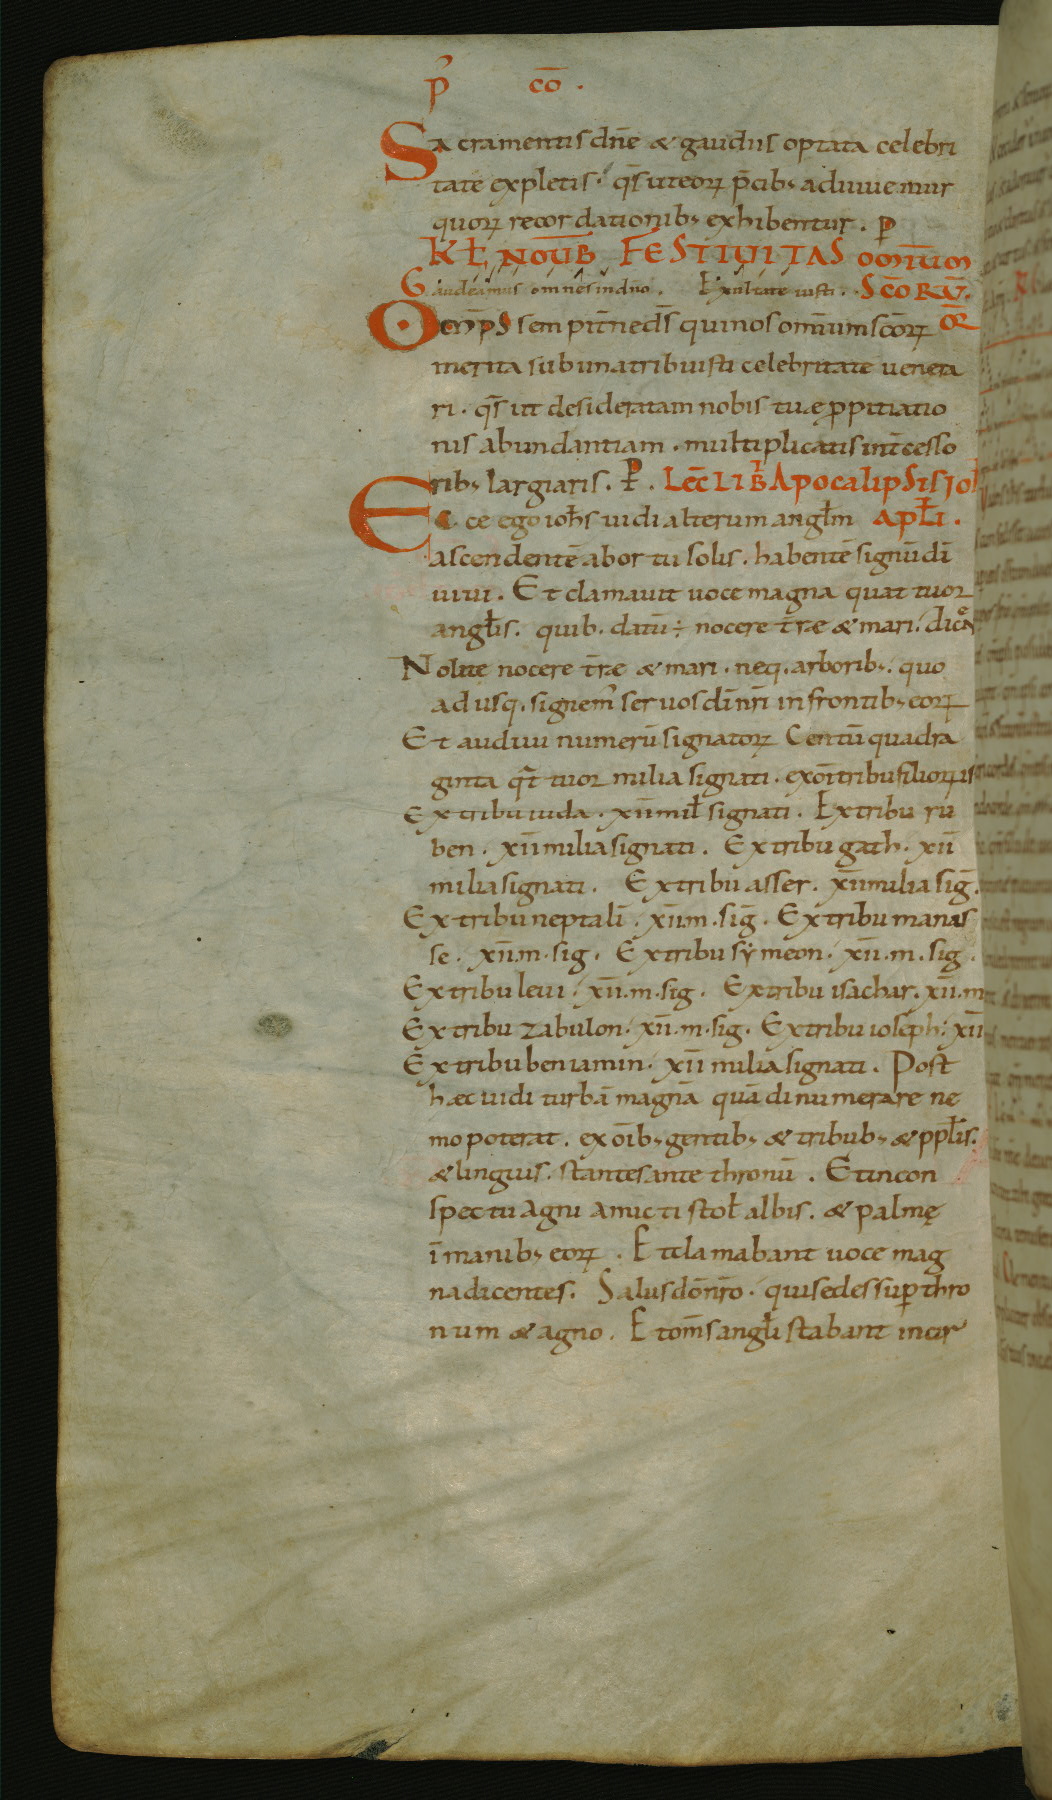 P̄ cō ·
Sacramentis dn̄e & gaudiis optata celebri
tate expletis · qs̄ ut eoꝝ p̄cib; adiuuemur
quoꝝ recordationib; exhibentur · P
KL̄ NOUB̄ FESTIUITAS OMNIUM
Gaudeamus omnes in dn̄o . Exultate iusti . SC̄ORŪ.
Omp̄s sempit̄ne ds̄ qui nos omniū sc̄oꝝ OR̄
merita sub una tribuisti celebritate uenera
ri · qs̄ ut desideratam nobis tuae ꝓpitiatio
nis abundantiam · multiplicatis int̄cesso
rib; largiaris . P . LEC̄ LIB̄ APOCALIPSIS IOh̄
Ecce ego ioh̄s uidi alterum angłm APŁI .
ascendentē ab ortu solis . habentē signū dī
uiui . Et clamauit uoce magna quattuor
angłis . quib . datū ÷ nocere t̄rae & mari . dicē
Nolite nocere t̄rae & mari . neq . arborib; . quo
ad usq . signem' seruos dī nr̄i in frontib; eoꝝ
Et audiui numerū signatoꝝ Centū quadra
ginta q̄ttuor milia signati . ex om̄i tribu filioꝝ isr
Ex tribu iuda . xii mił signati . Ex tribu ru
ben . xii milia signati . Ex tribu gath . xii
milia signati . Ex tribu asser . xii milia siḡ .
Ex tribu neptali . xii . m . siḡ . Ex tribu manas
se . xii . m . sig . Ex tribu symeon . xii . m . sig .
Ex tribu leui . xii . m . sig . Ex tribu isachar . xii . m
Ex tribu zabulon . xii . m . sig . Ex tribu ioseph . xii
Ex tribu beniamin . xii milia signati . Post
haec uidi turbā magnā quā dinumerare ne
mo poterat . ex om̄ib; gentib; & tribub; & ppłis .
& linguis . stantes ante thronū . Et in con
spectu agni amicti stoł albis . & palmę
ī manib; eoꝝ . Et clamabant uoce mag
na dicentes . Salus dō nr̄o . qui sedes suꝑ thro
num & agno . Et om̄s angłi stabant in cir